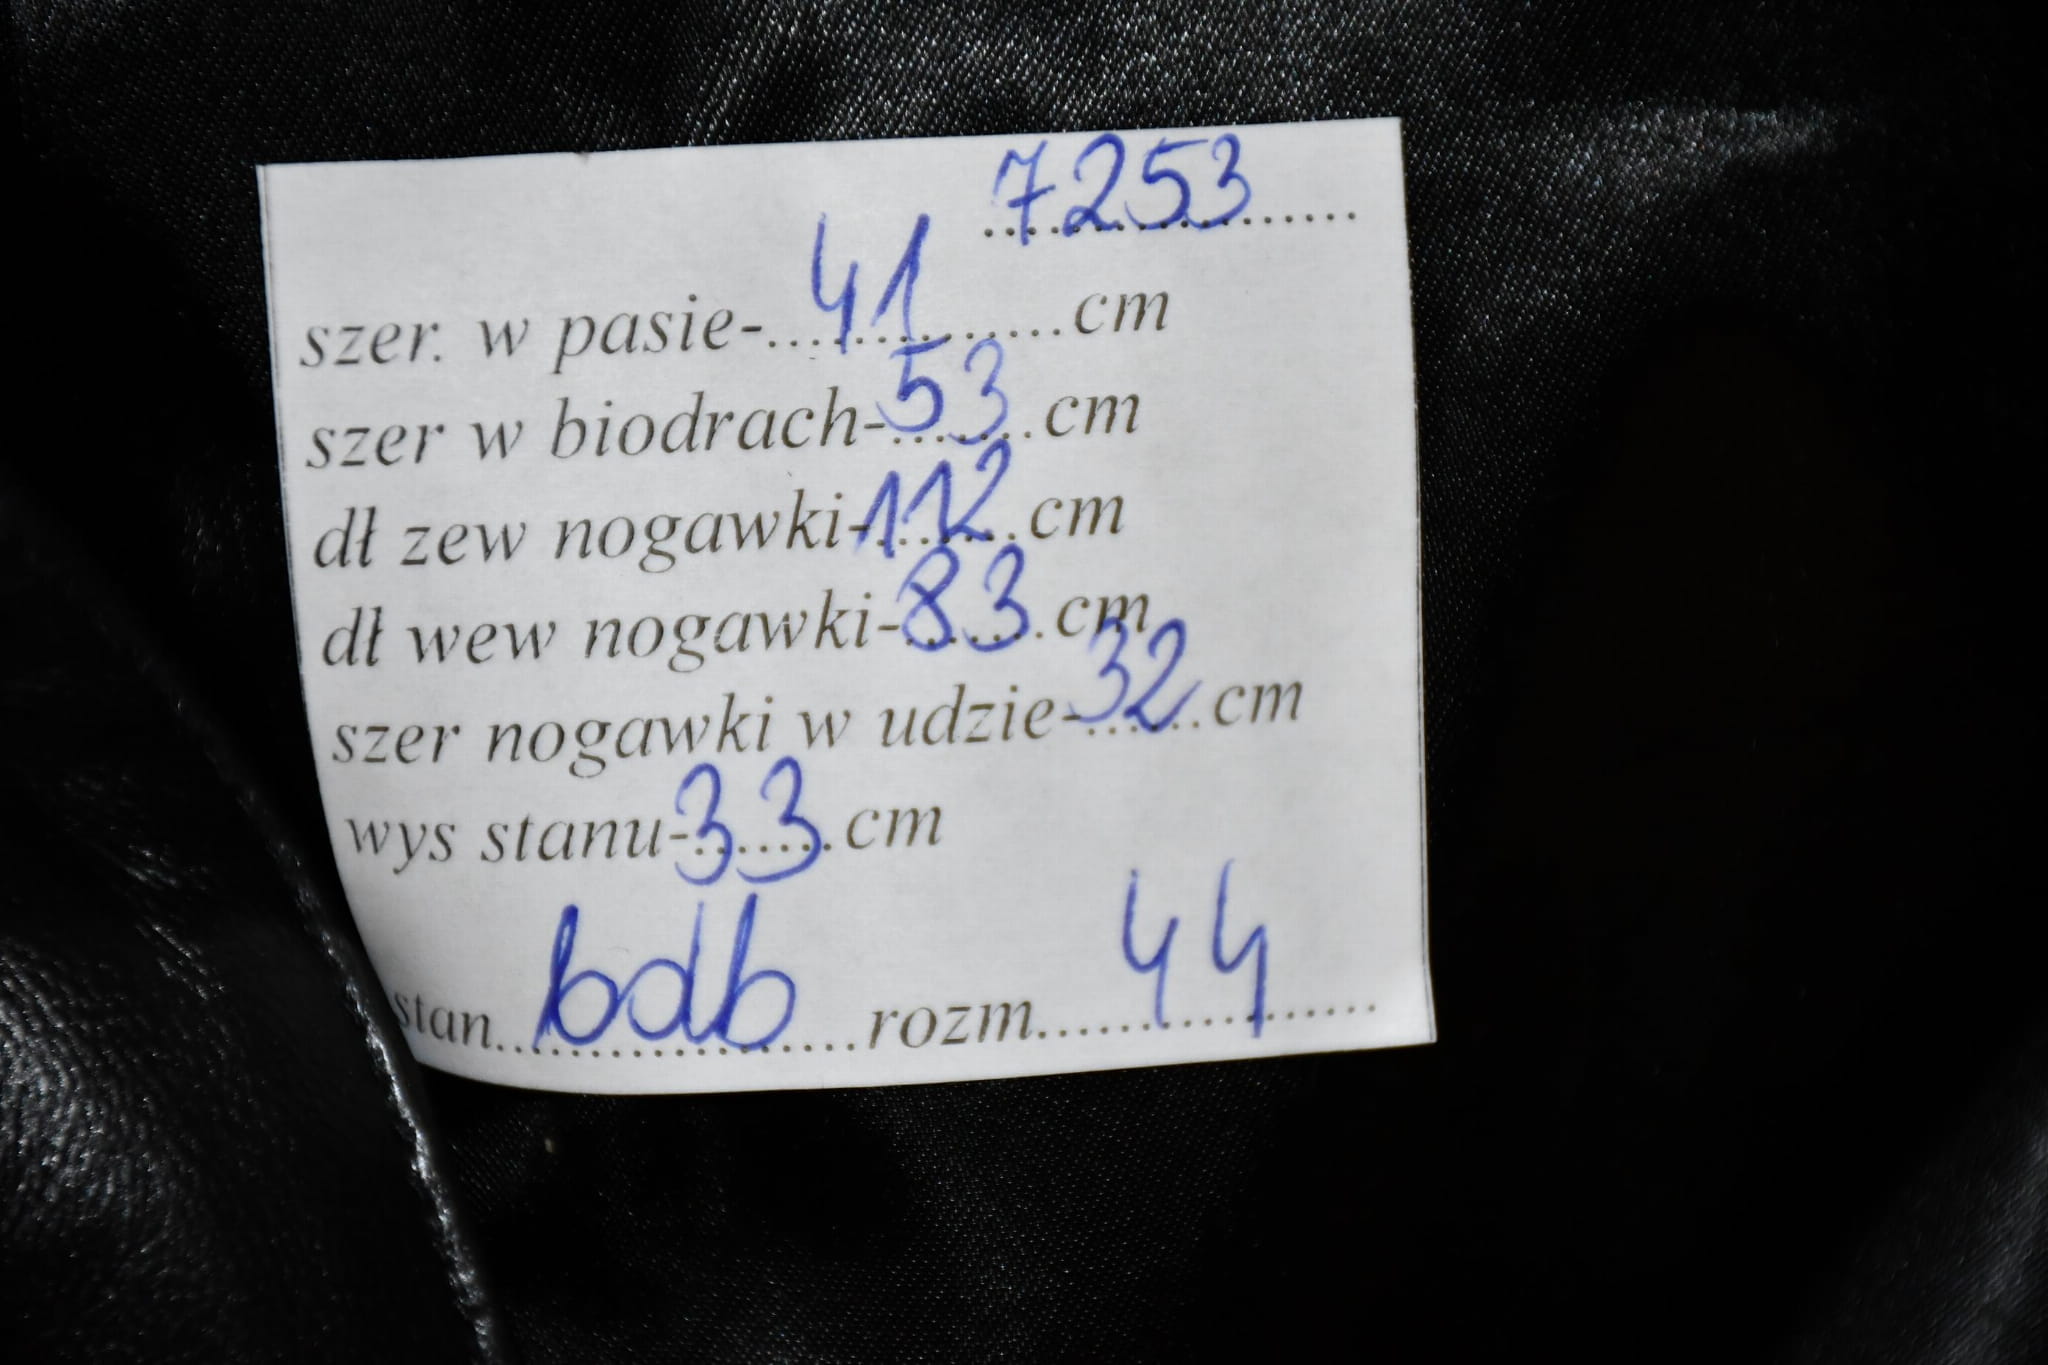 7253
szer. w pasie-41cm
szer w biodrach-53cm
dł zew nogawki-112cm
dł wew nogawki-83cm
szer nogawki w udzie-32cm
wys stanu-33cm
stan bdb rozm 44